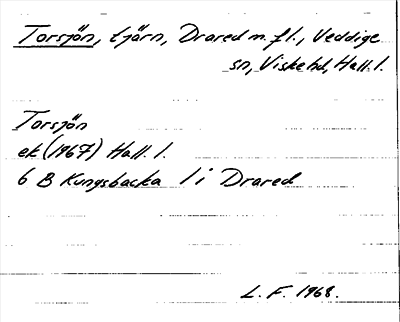 Torsjön, tjärn, Drared m. fl., Veddige
sn, Viske hd, Hall. l.
Torsjön
ek (1967) Hall. l.
6 B Kungsbacka 1 i Drared
L. F. 1968.